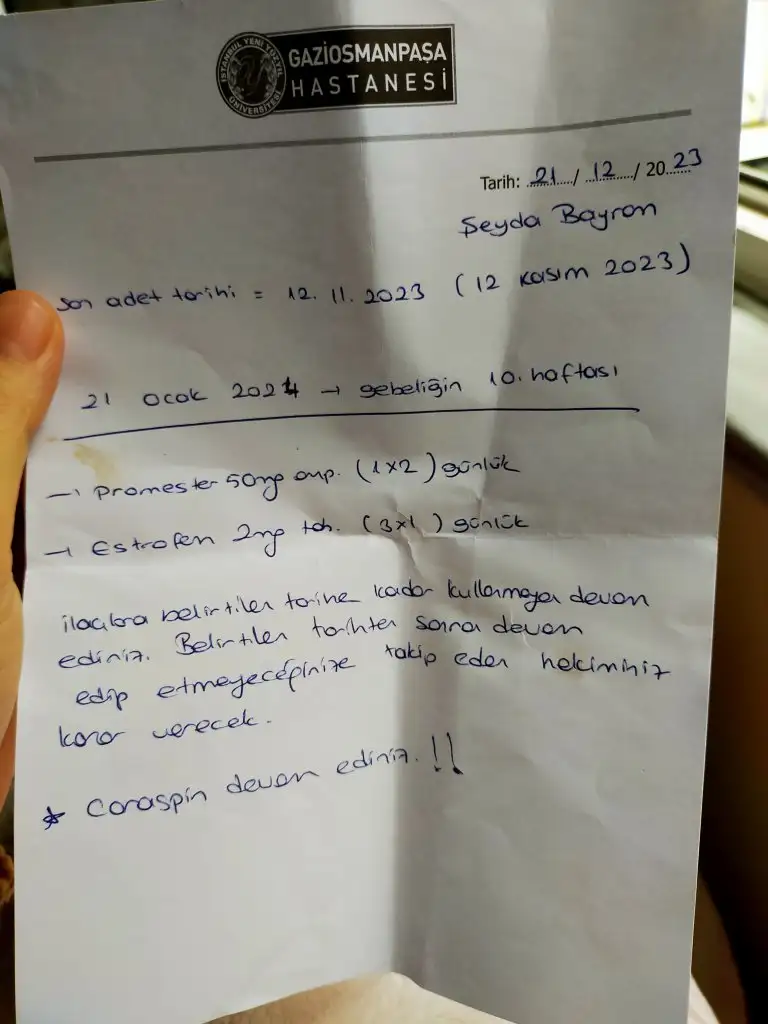 İSTANBUL YENİ YÜZYIL ÜNİVERSİTESİ
GAZİOSMANPAŞA
HASTANESİ
Tarih: 21 / 12 / 2023
Şeyda Bayram
Son adet tarihi = 12.11.2023 (12 Kasım 2023)
21 Ocak 2024 → gebeliğin 10. haftası
→ Promester 50mg amp. (1x2) günlük
→ Estrofen 2mg tab. (3x1) günlük
ilaçlara belirtilen tarihe kadar kullanmaya devam
ediniz. Belirtilen tarihten sonra devam
edip etmeyeceğinize takip eden hekiminiz
karar verecek.
* Coraspin devam ediniz.!!